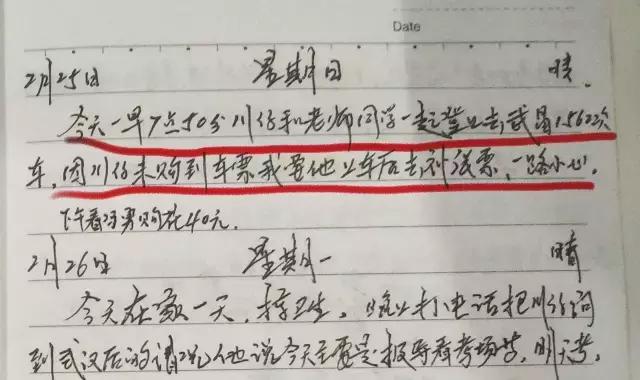 Date
2月25日 星期日 晴.
今天一早7点50分川仔和老师同学一起登上去武昌1560次
车,因川仔未购到车票我要他上车后去补张票,一路小心.
下午看购花40元.
2月26日 星期一 晴
今天在家一天,搞卫生。晚上打电话把川仔询
到武汉后的情况,他说今天主要是报导看考场等,明天考,